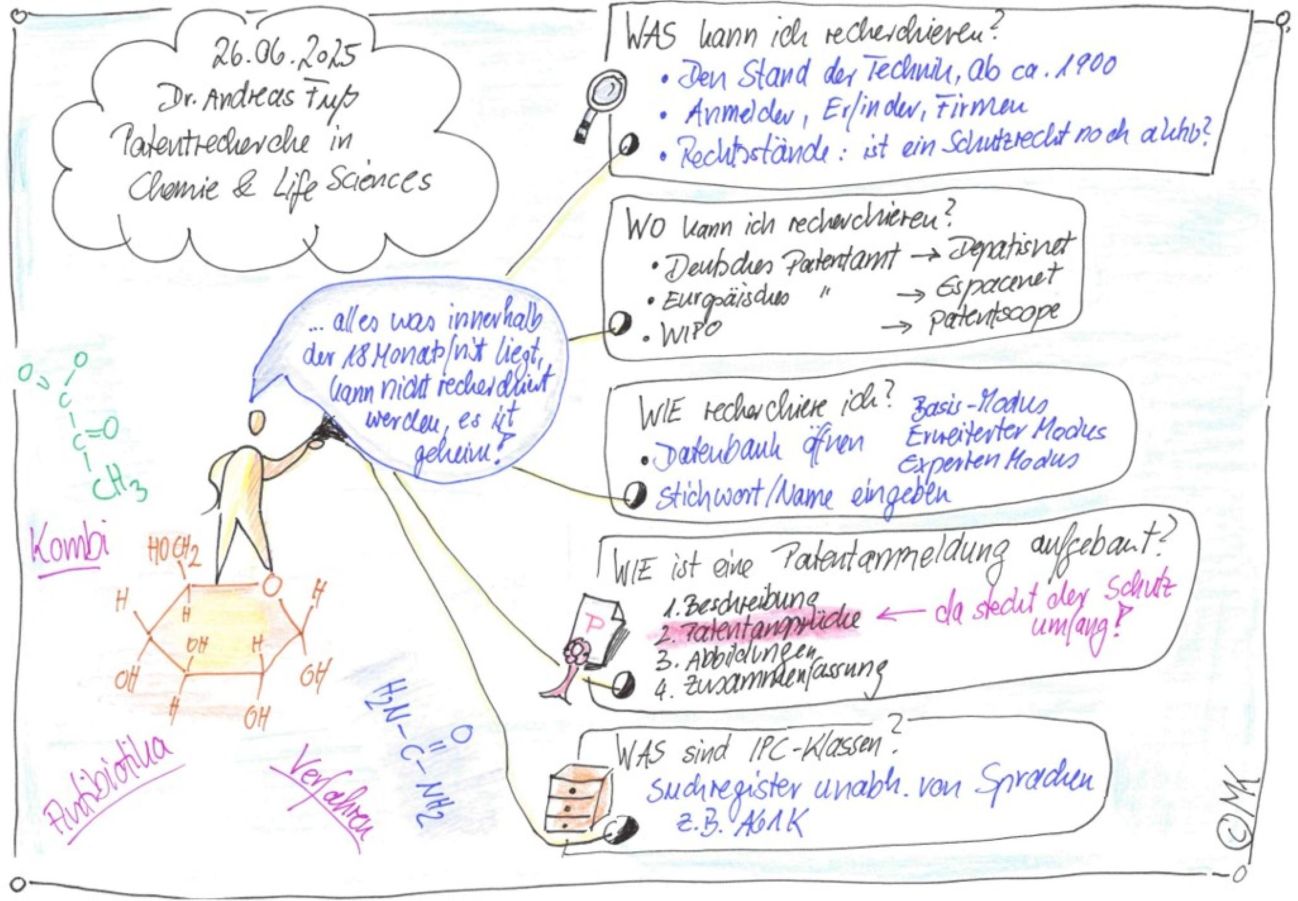 26.06.2025
Dr. Andreas Fuß
Patentrecherche in
Chemie & Life Sciences
WAS kann ich recherchieren?
• Den Stand der Technik, ab ca. 1900
• Anmelder, Erfinder, Firmen
• Rechtsstände: ist ein Schutzrecht noch aktiv?
WO kann ich recherchieren?
• Deutsches Patentamt → Depatisnet
• Europäisches " → Espacenet
• WIPO → Patentscope
... alles was innerhalb
der 18 Monatsfrist liegt,
kann nicht recherchiert
werden, es ist
geheim!
WIE recherchiere ich?
• Datenbank öffnen
Basis-Modus
Erweiterter Modus
Experten Modus
Stichwort/Name eingeben
WIE ist eine Patentanmeldung aufgebaut?
1. Beschreibung
2. Patentansprüche ← da steckt der Schutz
umfang!
3. Abbildungen
4. Zusammenfassung
P
WAS sind IPC-Klassen?
Suchregister unabh. von Sprachen
z.B. A61K
O
O
C
C=O
CH3
Kombi
HOCH2
O
H
H
H
OH
H
OH
OH
H
H
OH
Antibiotika
Verfahren
H2N-C-NH2
O
©MK